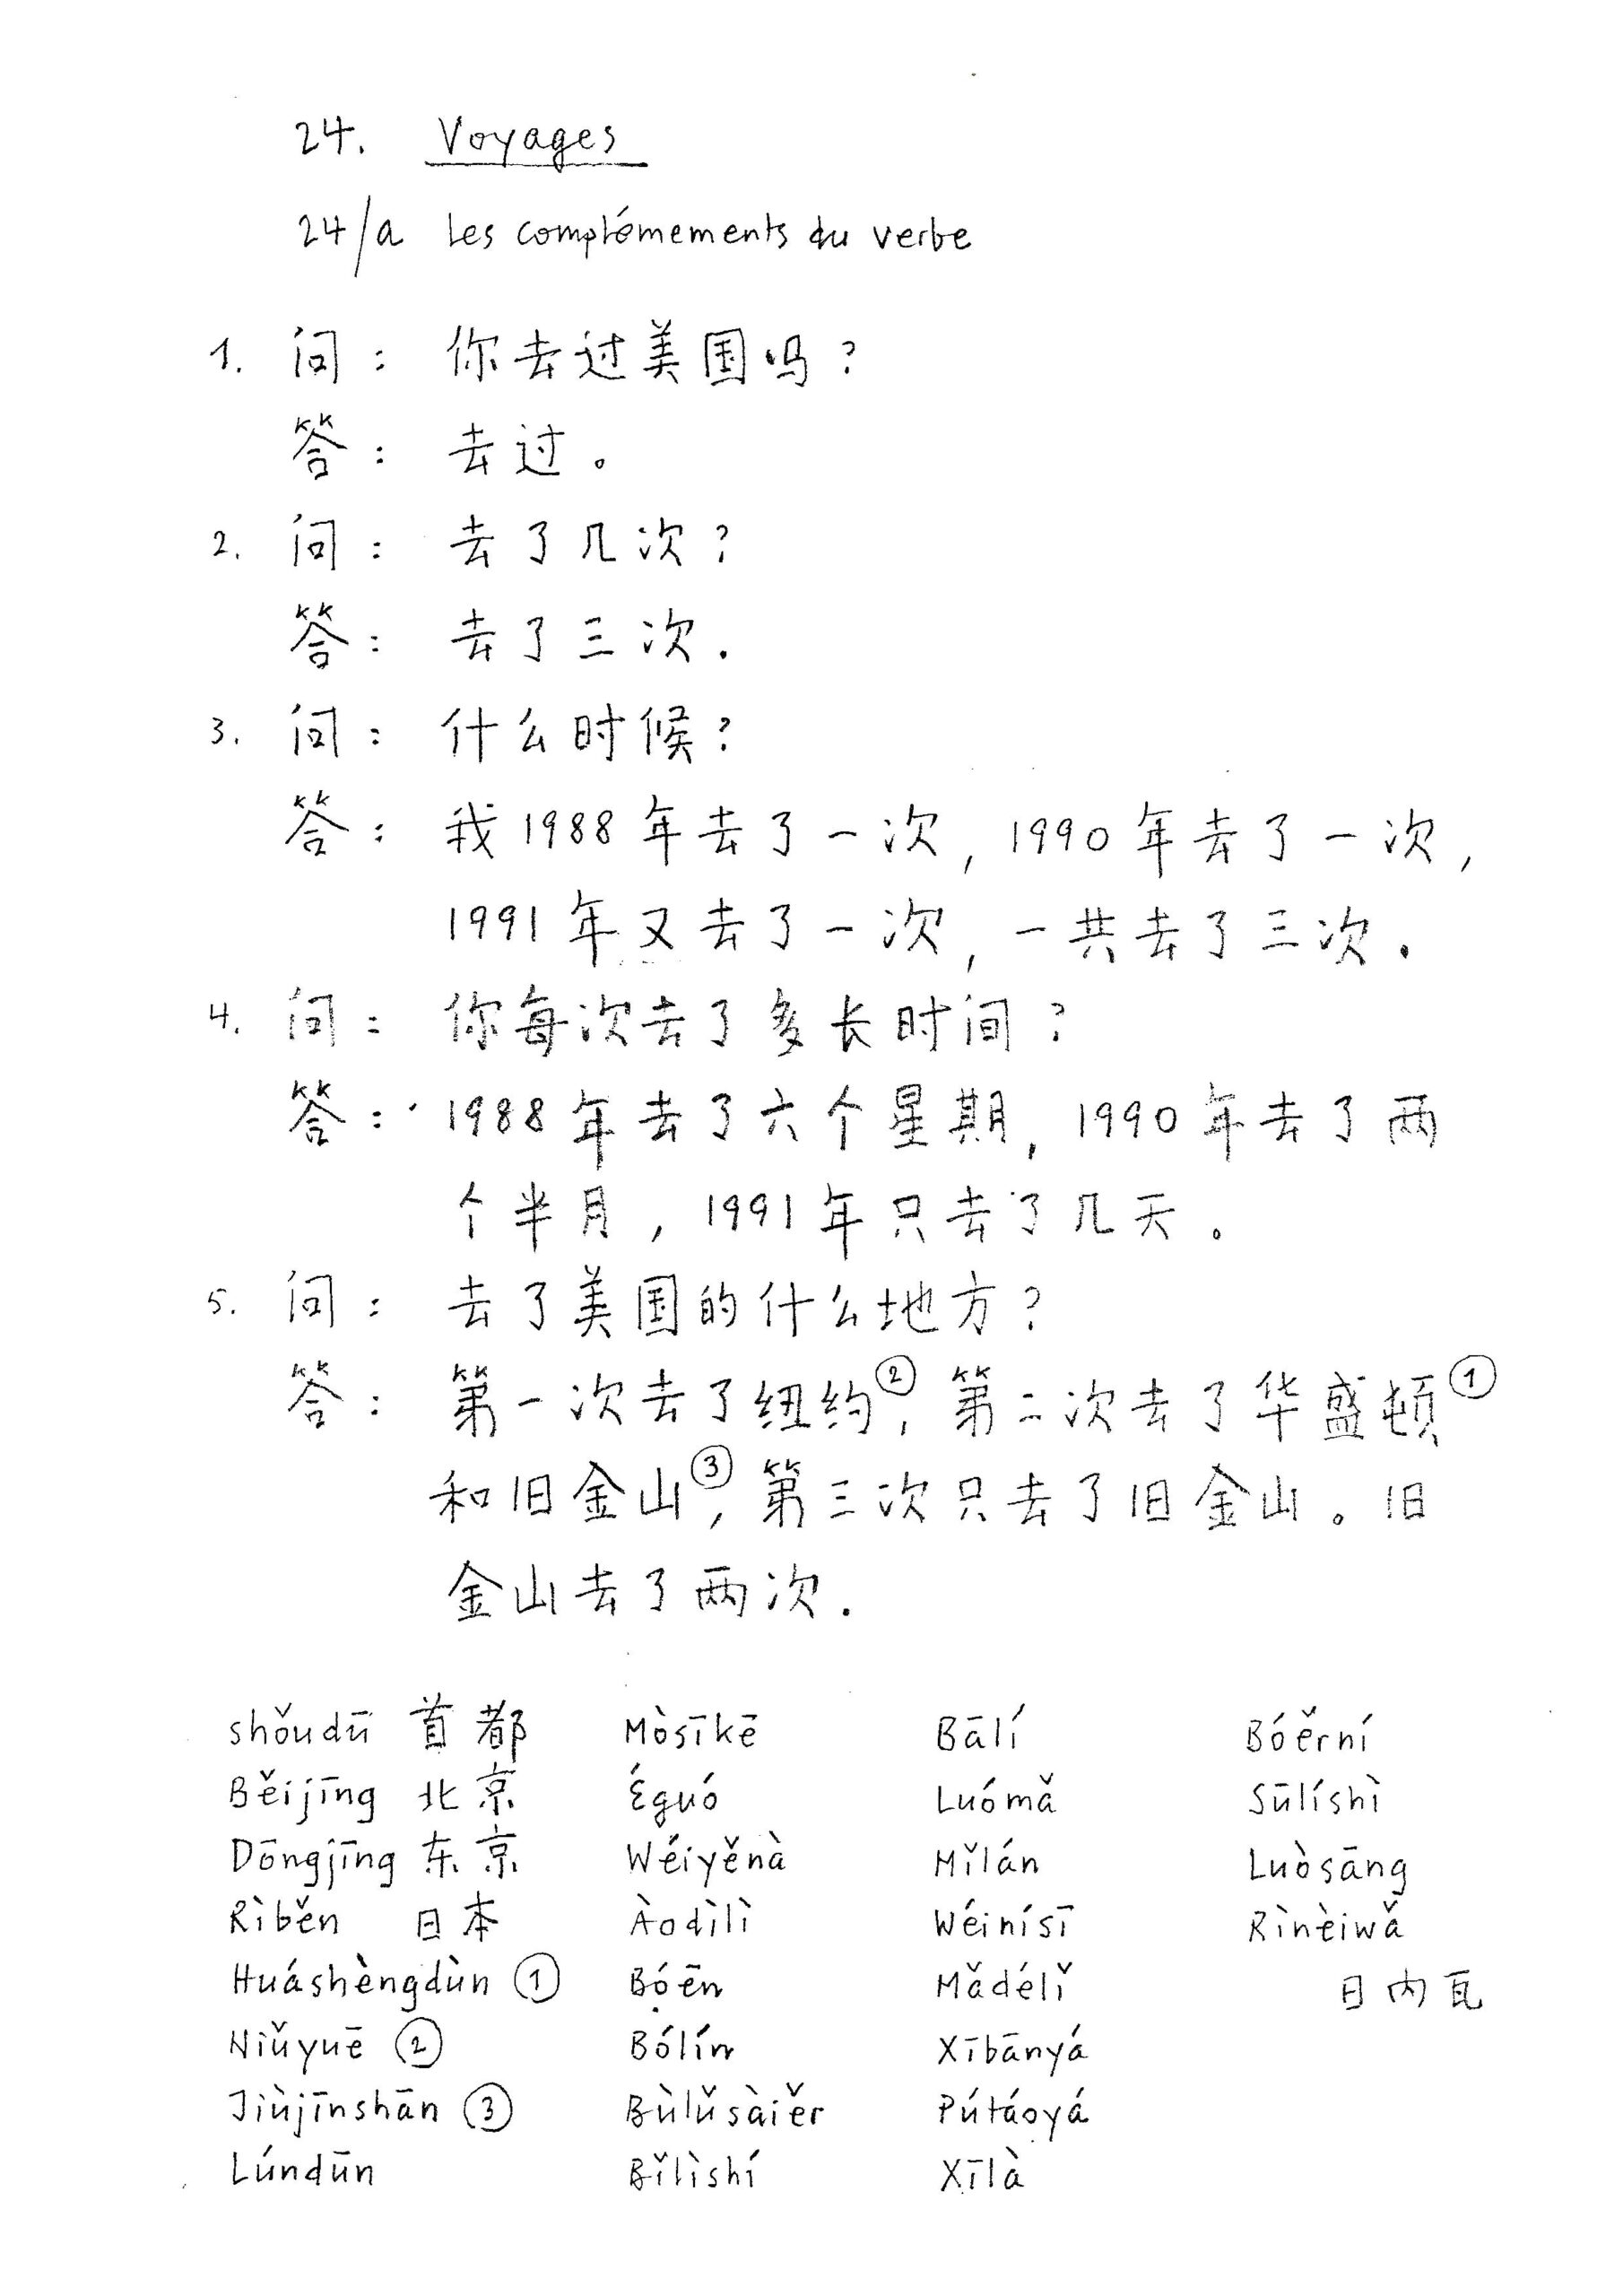 24. Voyages
24/a Les complémements du verbe
1. 问: 你去过美国吗?
答: 去过。
2. 问: 去了几次?
答: 去了三次.
3. 问: 什么时候?
答: 我1988年去了一次, 1990年去了一次,
1991年又去了一次, 一共去了三次.
4. 问: 你每次去了多长时间?
答: 1988年去了六个星期, 1990年去了两
个半月, 1991年只去了几天。
5. 问: 去了美国的什么地方?
答: 第一次去了纽约②, 第二次去了华盛顿①
和旧金山③, 第三次只去了旧金山。旧
金山去了两次.
shǒudū 首都 Mòsīkē Bālí Bóěrní
Běijīng 北京 Éguó Luómǎ Sūlíshì
Dōngjīng 东京 Wéiyěnà Mǐlán Luòsāng
Rìběn 日本 Àodìlì Wéinísī Rìnèiwǎ
Huáshèngdùn ① Bóēn Mǎdélǐ 日内瓦
Niǔyuē ② Bólín Xībānyá
Jiùjīnshān ③ Bùlǔsàiěr Pútáoyá
Lúndūn Bǐlìshí Xīlà